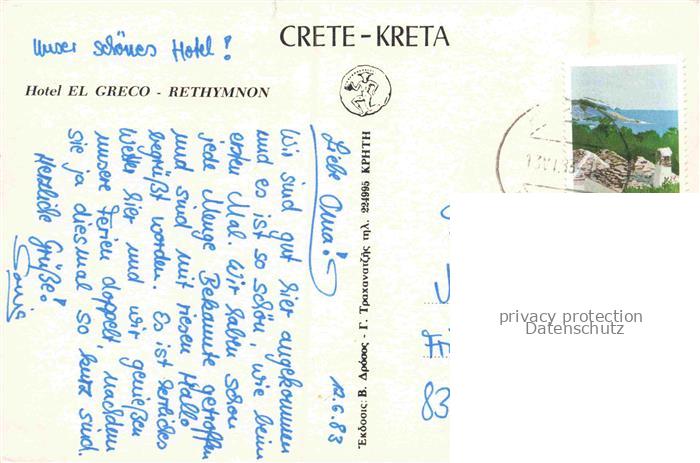 Unser schönes Hotel!
CRETE - KRETA
Hotel EL GRECO - RETHYMNON
12.6.83
Liebe Oma!
Wir sind gut hier angekommen
und es ist so schön, wie beim
ersten Mal. Wir haben schon
jede Menge Bekannte getroffen
und sind mit riesen Hallo
begrüßt worden. Es ist herrliches
Wetter hier und wir genießen
unsere Ferien doppelt, nachdem
sie ja diesmal so kurz sind.
Herzliche Grüße!
Ἔκδοσις: Β. Δρόσος - Γ. Τραχανατζής τηλ. 224995 ΚΡΗΤΗ
83
privacy protection
Datenschutz